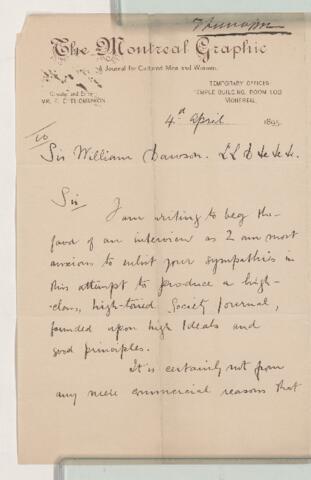 Thomson
The Montreal Graphic
A Journal for Cultured Men and Women.
TEMPORARY OFFICES
TEMPLE BUILDING, ROOM
MONTREAL
4th April 1895
To
Sir William Dawson. LL D &c &c &c.
Sir I am writing to beg the
favor of an interview as I am most
anxious to enlist your sympathies in
this attempt to produce a high-
-class, high-toned Society Journal,
founded upon high Ideals and
good principles.
It is certainly not from
any mere commercial reasons that